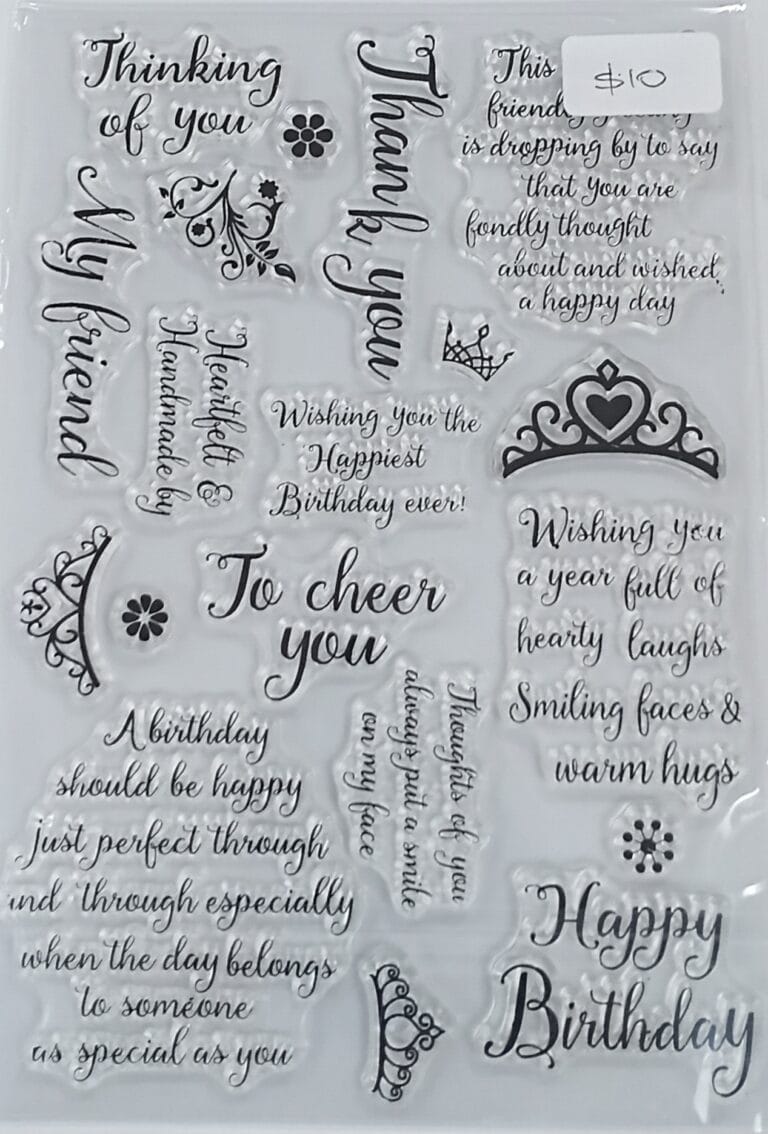 Thinking
of you
Thank you
$10
This
is dropping by to say
that you are
fondly thought
about and wished
a happy day
My friend
Heartfelt &
Handmade by
Wishing you the
Happiest
Birthday ever!
To cheer
you
Wishing you
a year full of
hearty laughs
Smiling faces &
warm hugs
A birthday
should be happy
just perfect through
and through especially
when the day belongs
to someone
as special as you
Thoughts of you
always put a smile
on my face
Happy
Birthday